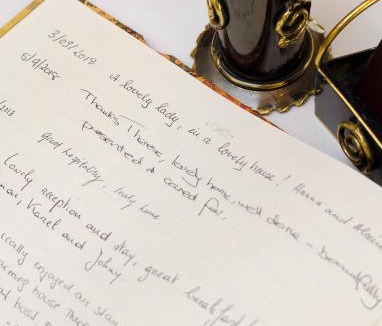 3/09/2018
A lovely lady, in a lovely house! Hanna and
5/9/2018
Thanks Therese, lovely home, well done - beautifully
presented & cared for.
/2018
great hospitality, lovely home
Lovely reception and stay, great breakfast
Karel and Johny
really engaged our stay
house
host